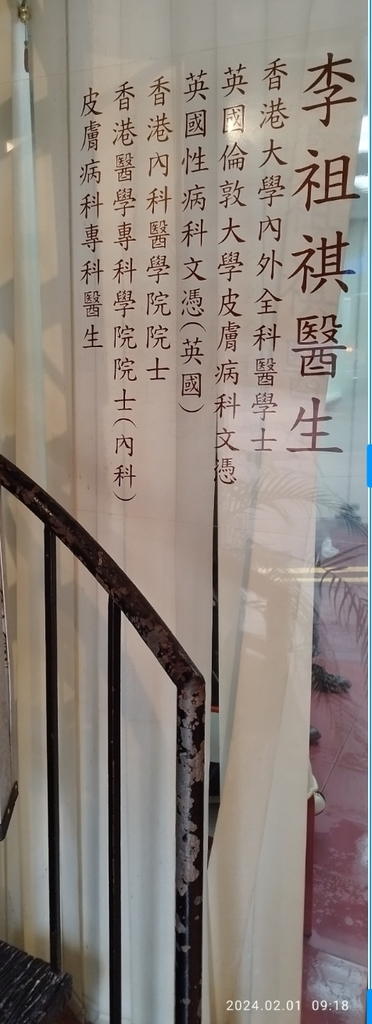 李祖祺醫生
香港大學內外全科醫學士
英國倫敦大學皮膚病科文憑
英國性病科文憑(英國)
香港內科醫學院院士
香港醫學專科學院院士(內科)
皮膚病科專科醫生
2024.02.01 09:18